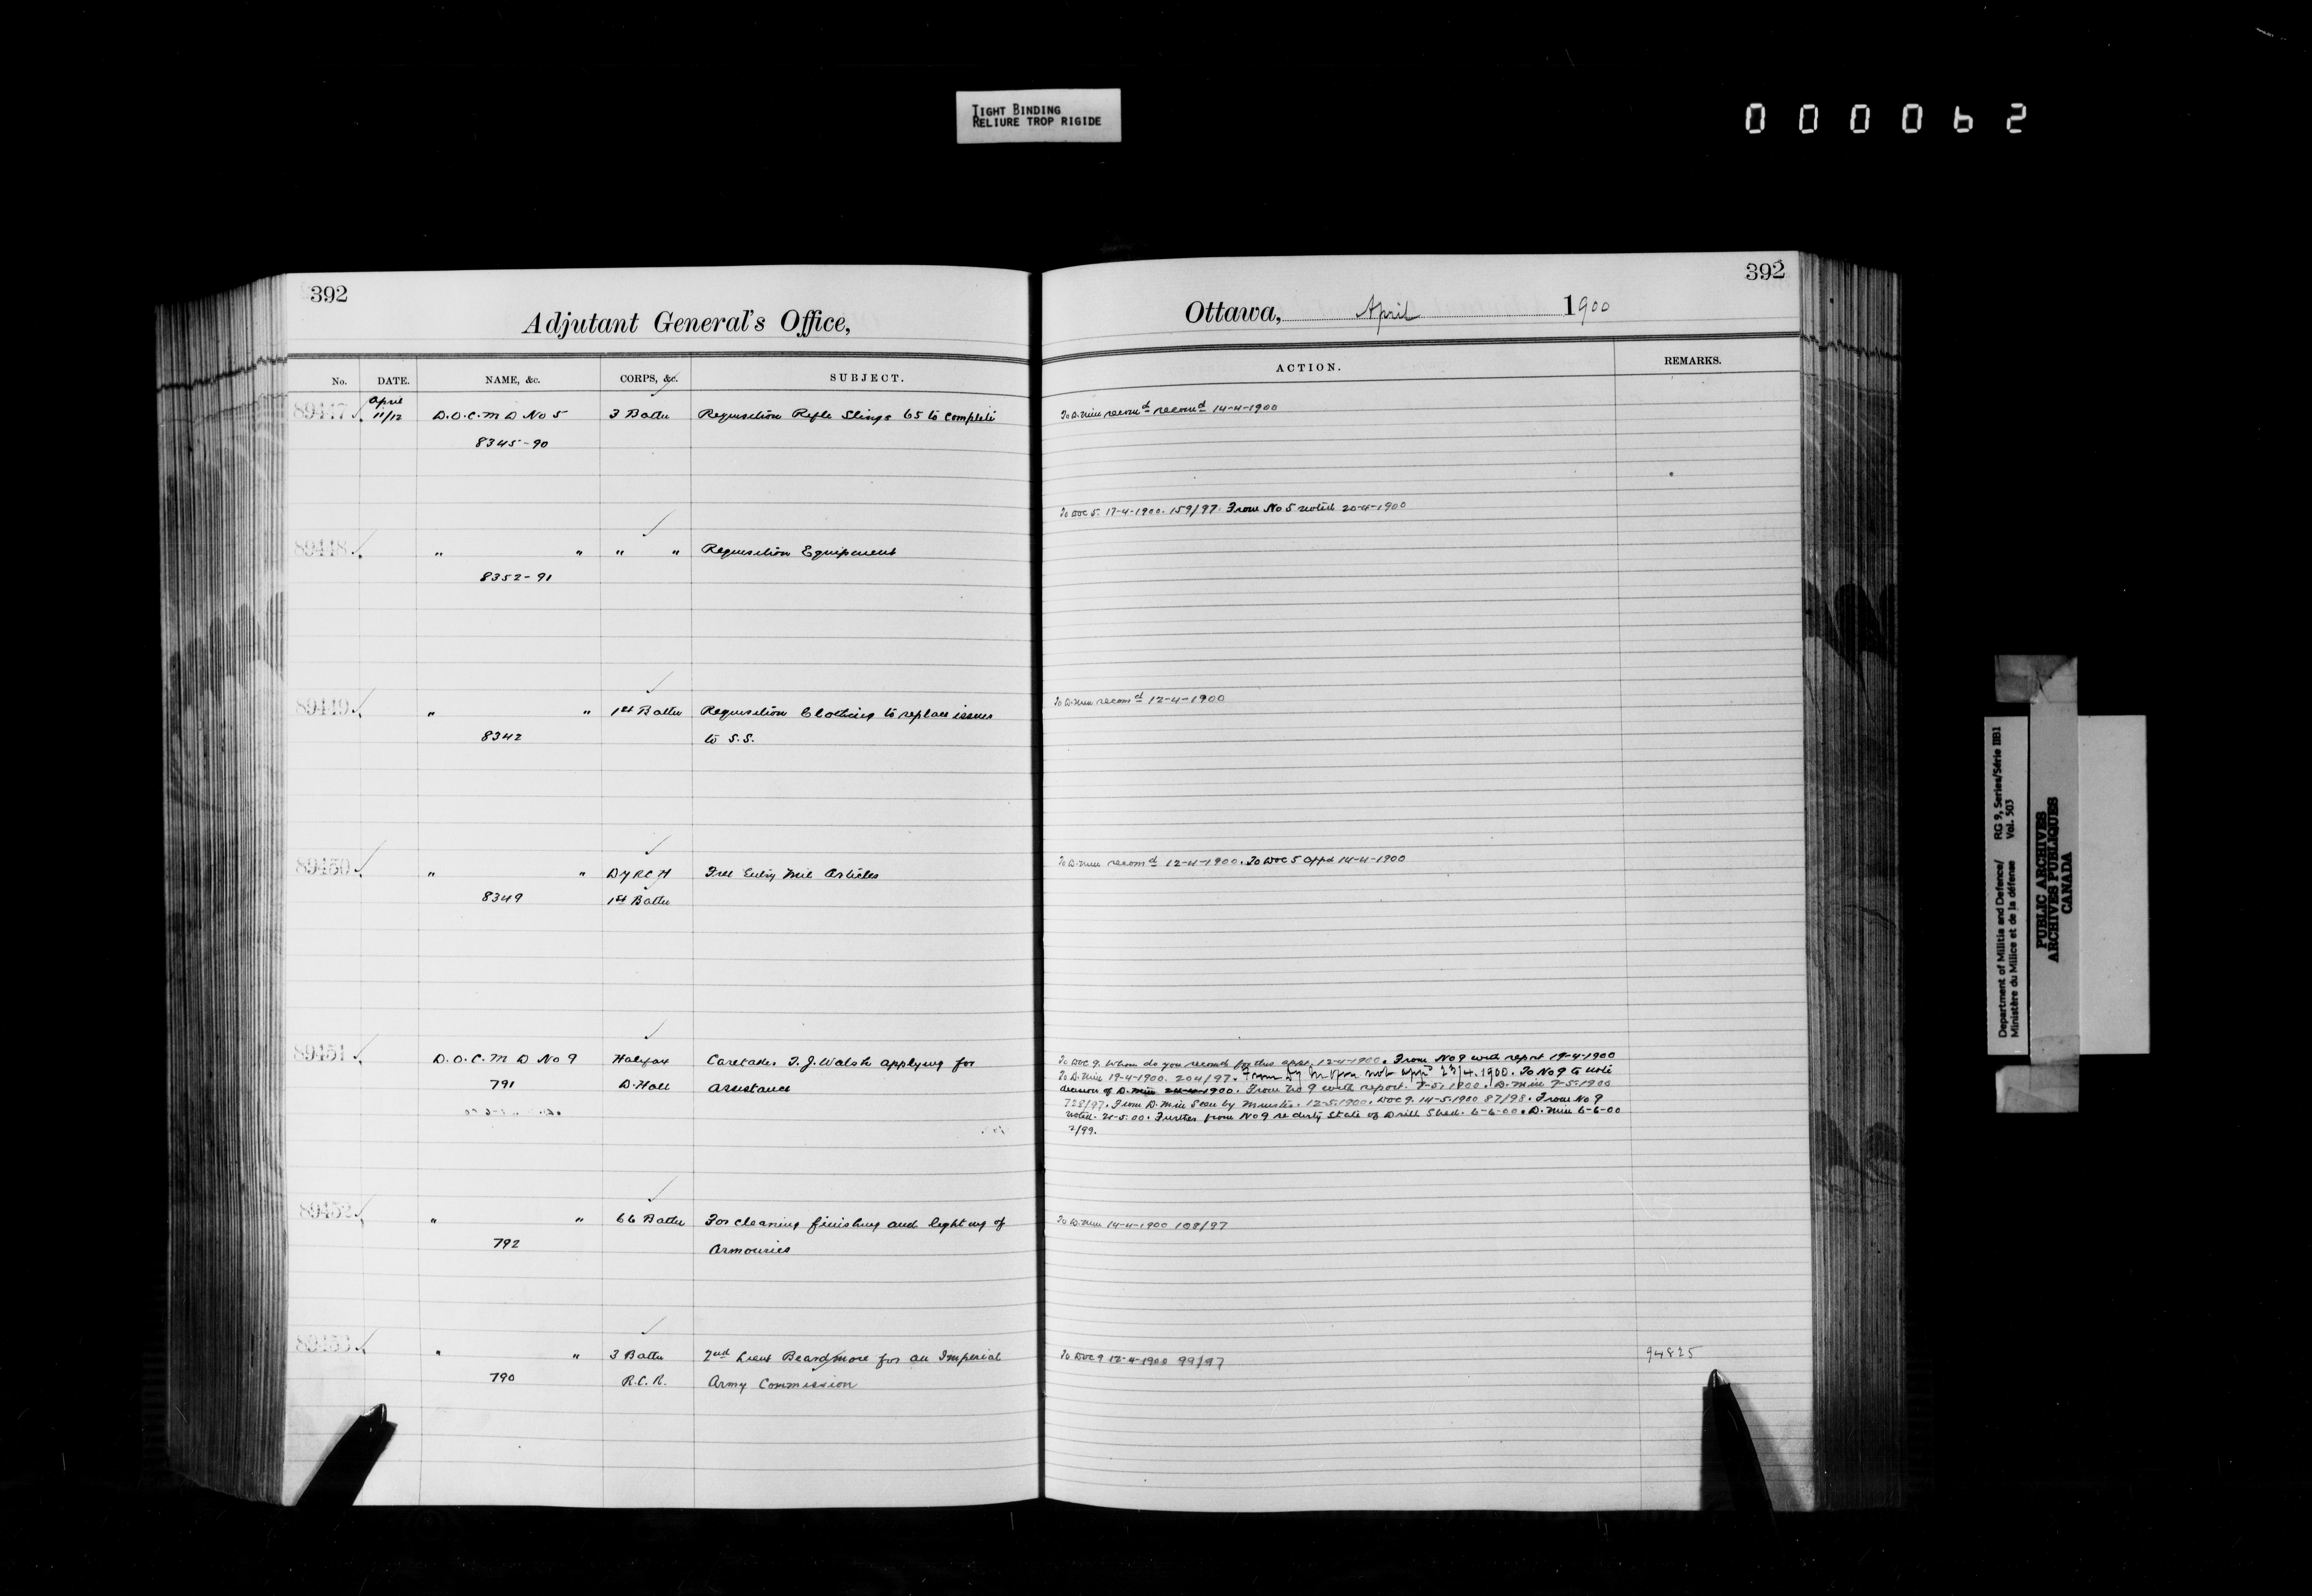 TIGHT BINDING
RELIURE TROP RIGIDE
000062
392
Adjutant General's Office,
No. DATE. NAME, &c. CORPS, &c. SUBJECT.
April
89447 11/12 D.O.C. M D No 5 3 Battn Requisition Rifle Slings 65 to complete
8345-90
89448 " " " " Requisition Equipment
8352-91
89449 " " 1st Battn Requisition Clothing to replace issues
8342 to S.S.
89450 " " Free Entry Mil Articles
8349 1st Battn
89451 D.O.C. M D No 9 Halifax Caretaker T. J. Walsh applying for
791 D. Hall assistance
89452 " " 66 Battn For cleaning finishing and lighting of
792 Armouries
89453 " " 3 Battn 2nd Lieut Beardmore for an Imperial
790 R.C.R. Army Commission
392
Ottawa, April 1900
ACTION. REMARKS.
To D. Min recomd recomd 14-4-1900
To DOC 5. 17-4-1900. 159/97. From No 5 noted 20-4-1900
To D. Min recomd 12-4-1900
To D. Min recomd 12-4-1900. To DOC 5 appd 14-4-1900
To DOC 9. When do you recomd for this appn. 12-4-1900. From No 9 with report 19-4-1900
To D. Min 19-4-1900. 204/97. From not 23/4.1900. To No 9 to note
decision of D. Min 24-4-1900. From No 9 with report. 7-5-1900. D. Min 7-5-1900
728/97. From D. Min Seen by Minister. 12-5-1900. DOC 9. 14-5-1900 87/98. From No 9
noted. 21-5-00. Further from No 9 re dirty State of Drill Shed. 6-6-00. D. Min 6-6-00
2/99.
To D. Min 14-4-1900 108/97
To DOC 9 12-4-1900 99/97 94825
Department of Militia and Defence/ RG 9, Series/Série IIB1
Ministère du Milice et de la défense Vol. 503
PUBLIC ARCHIVES
ARCHIVES PUBLIQUES
CANADA